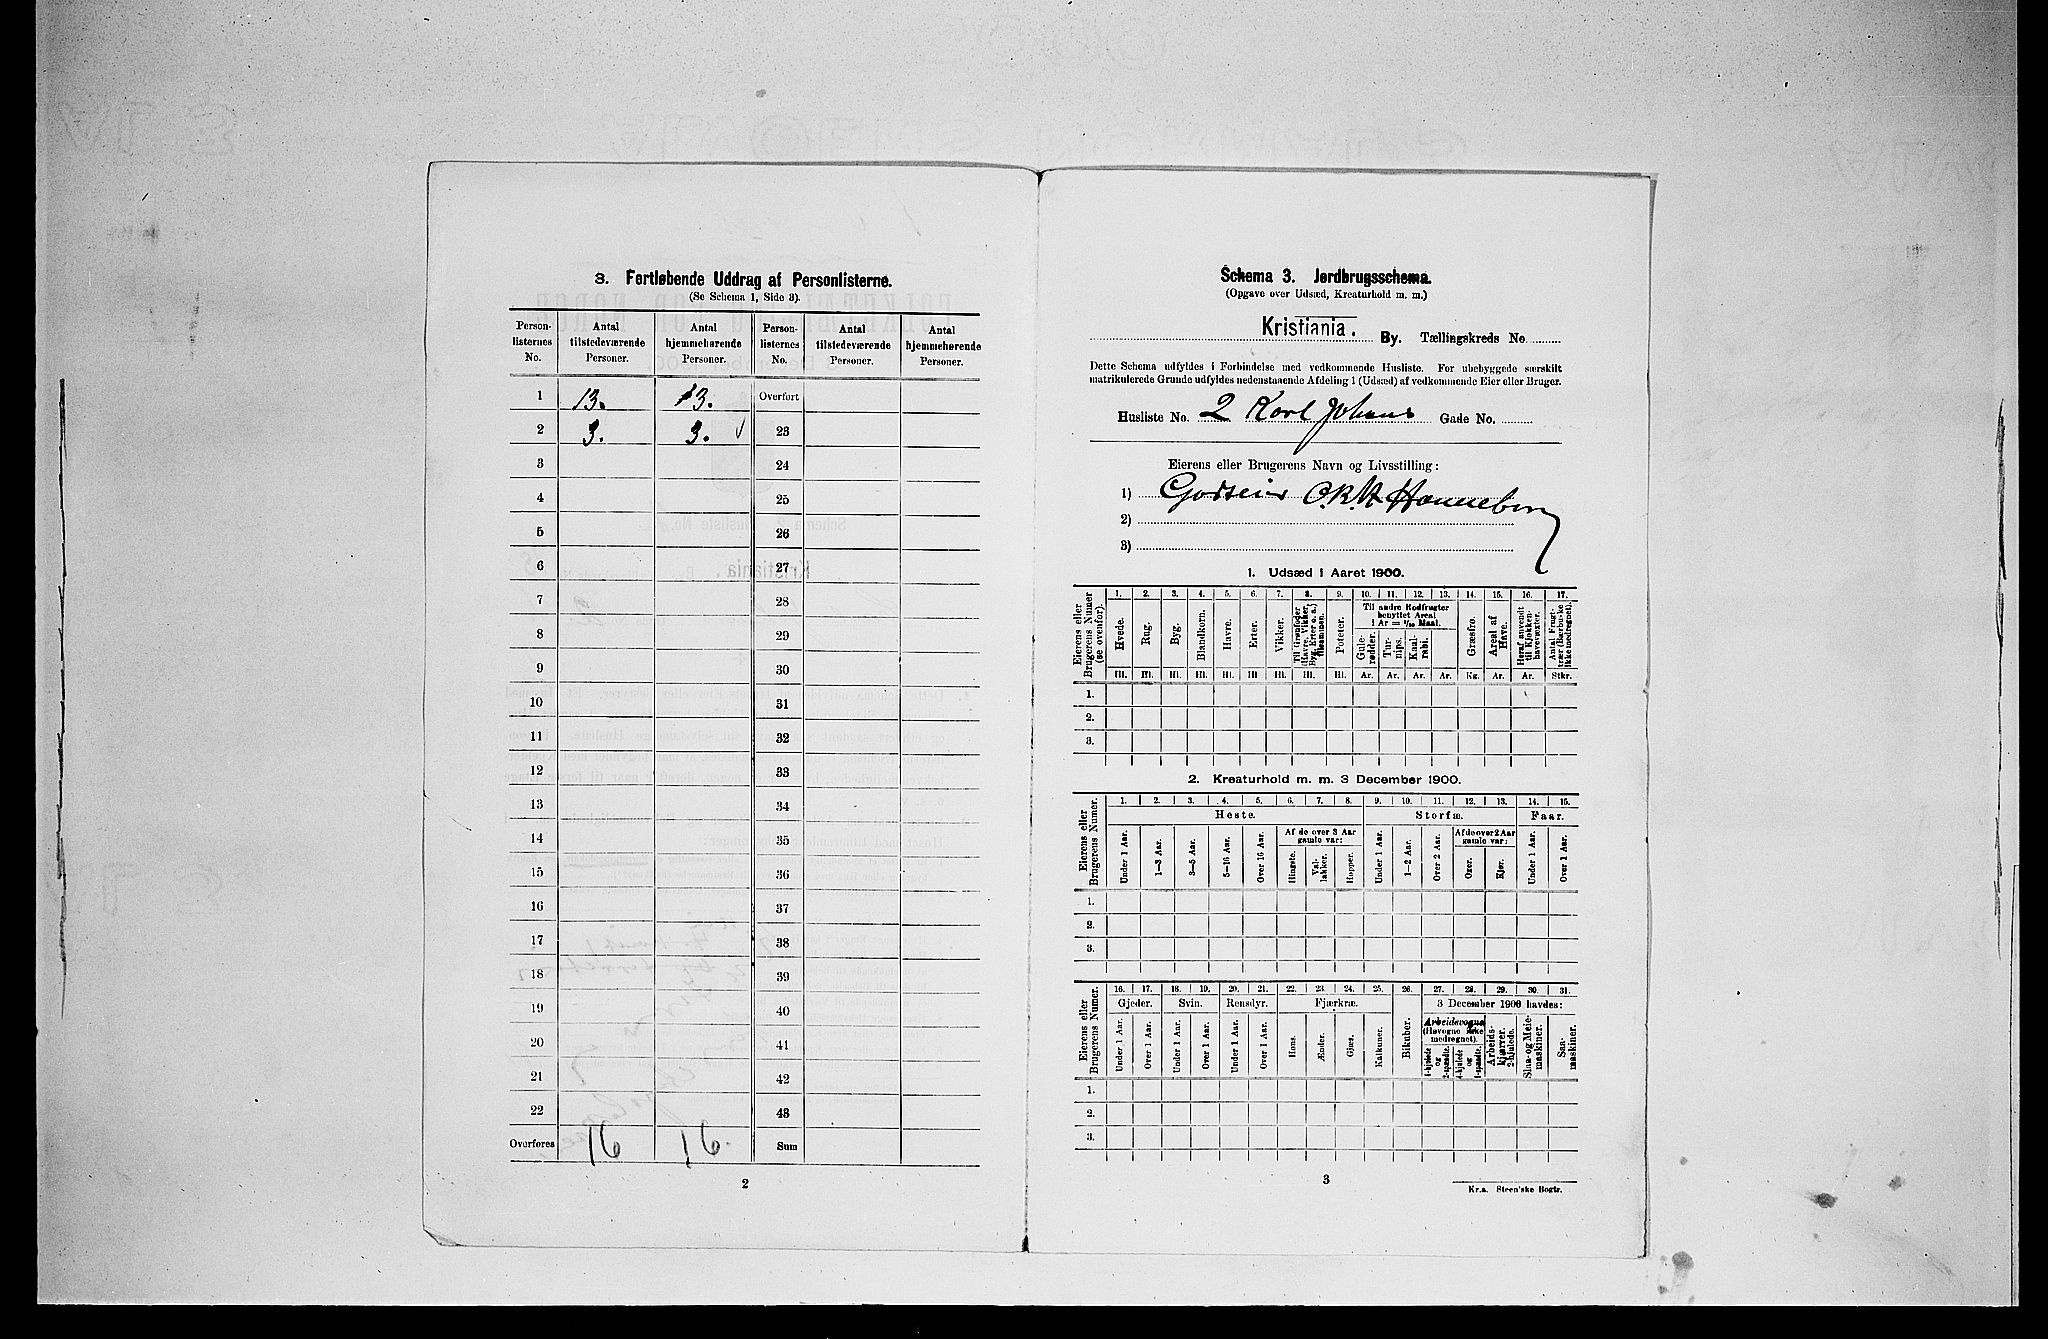 3. Fortløbende Uddrag af Personlisterne.
(Se Schema 1, Side 3).
Person-listernes No. Antal tilstedeværende Personer. Antal hjemmehørende Personer. Person-listernes No. Antal tilstedeværende Personer. Antal hjemmehørende Personer.
1 13. 13. Overført
2 3. 3. 23
3 24
4 25
5 26
6 27
7 28
8 29
9 30
10 31
11 32
12 33
13 34
14 35
15 36
16 37
17 38
18 39
19 40
20 41
21 42
22 43
Overføres 16 16. Sum
2
Schema 3. Jordbrugsschema.
(Opgave over Udsæd, Kreaturhold m. m.)
Kristiania. By. Tællingskreds No.
Dette Schema udfyldes i Forbindelse med vedkommende Husliste. For ubebyggede særskilt
matrikulerede Grunde udfyldes nedenstaaende Afdeling 1 (Udsæd) af vedkommende Eier eller Bruger.
Husliste No. 2 Karl Johans Gade No.
Eierens eller Brugerens Navn og Livsstilling:
1) Godseier Hanneborg
2)
3)
1. Udsæd i Aaret 1900.
Eierens eller Brugerens Numer (se ovenfor).
1. 2. 3. 4. 5. 6. 7. 8. 9. 10. 11. 12. 13. 14. 15. 16. 17.
Hvede. Rug. Byg. Blandkorn. Havre. Erter. Vikker. Til Grønfoder (Havre, Vikker, Byg, Erter o. a.) tilsammen. Poteter. Til andre Rodfrugter benyttet Areal 1 Ar = 1/10 Maal. Gule-rødder. Tur-nips. Kaal-rabi. Græsfrø. Areal af Have. Heraf anvendt til Kjøkken-havevæxter. Antal Frugt-trær (Bærbuske ikke medregnet).
Hl. Hl. Hl. Hl. Hl. Hl. Hl. Hl. Hl. Ar. Ar. Ar. Ar. Kg. Ar. Ar. Stkr.
1.
2.
3.
2. Kreaturhold m. m. 3 December 1900.
Eierens eller Brugerens Numer.
1. 2. 3. 4. 5. 6. 7. 8. 9. 10. 11. 12. 13. 14. 15.
Heste. Storfæ. Faar.
Under 1 Aar. 1—3 Aar. 3—5 Aar. 5—16 Aar. Over 16 Aar. Af de over 3 Aar gamle var: Hingste. Val-lakker. Hopper. Under 1 Aar. 1—2 Aar. Over 2 Aar. Af de over 2 Aar gamle var: Oxer. Kjør. Under 1 Aar. Over 1 Aar.
1.
2.
3.
Eierens eller Brugerens Numer.
16. 17. 18. 19. 20. 21. 22. 23. 24. 25. 26. 27. 28. 29. 30. 31.
Gjeder. Svin. Rensdyr. Fjærkræ. Bikuber. 3 December 1900 havdes:
Under 1 Aar. Over 1 Aar. Under 1 Aar. Over 1 Aar. Under 1 Aar. Over 1 Aar. Høns. Ænder. Gjæs. Kalkuner. Arbeidsvogne (Høvogne ikke medregnet). 4-hjulede og 2-spændte. 4-hjulede og 1-spændte. Arbeids-kjærrer. 2-hjulede. Slaa- og Meie-maskiner. Saa-maskiner.
1.
2.
3.
3
Kr.a. Steen'ske Bogtr.